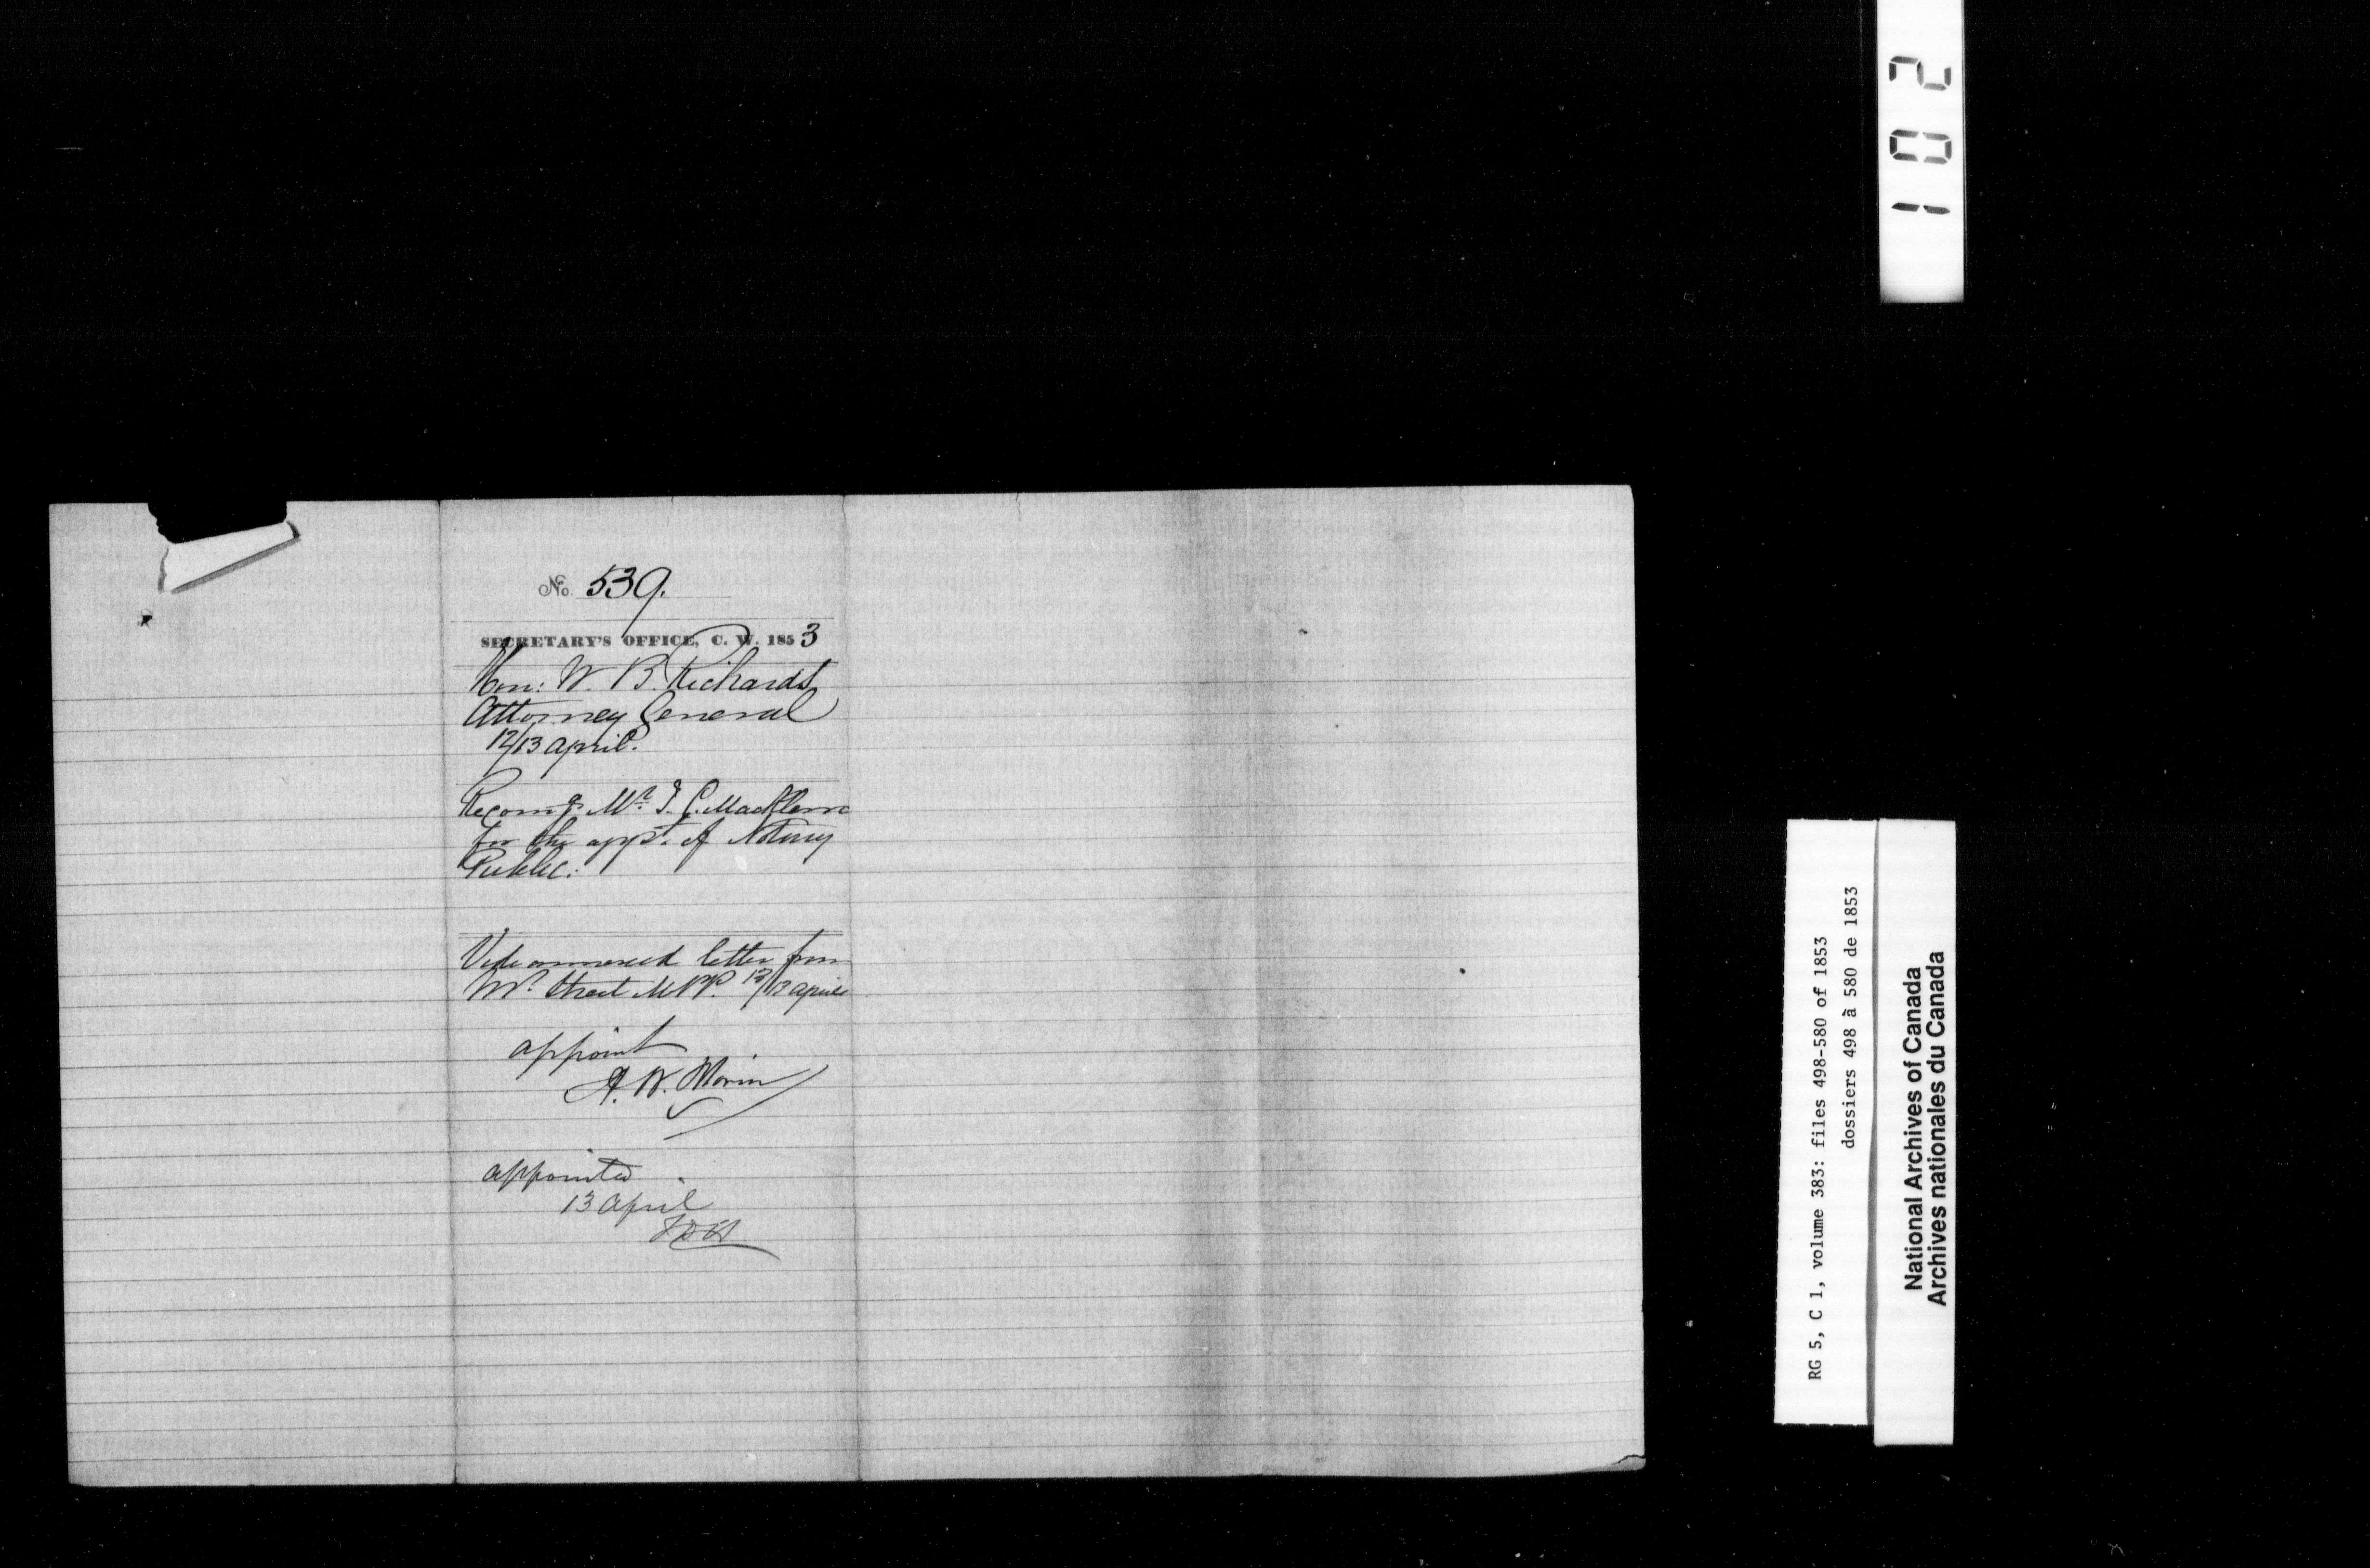 No. 539.
SECRETARY'S OFFICE, C. W. 1853
Hon: W. B. Richards
Attorney General
12/13 April.
Recomg. Mr. T. C. Macklem
for the appt. of Notary
Public.
Vide annexed letter from
Mr. Street MPP. 12/13 April
appoint
A. N. Morin
appointed
13 April
102
RG 5, C 1, volume 383: files 498-580 of 1853
dossiers 498 à 580 de 1853
National Archives of Canada
Archives nationales du Canada